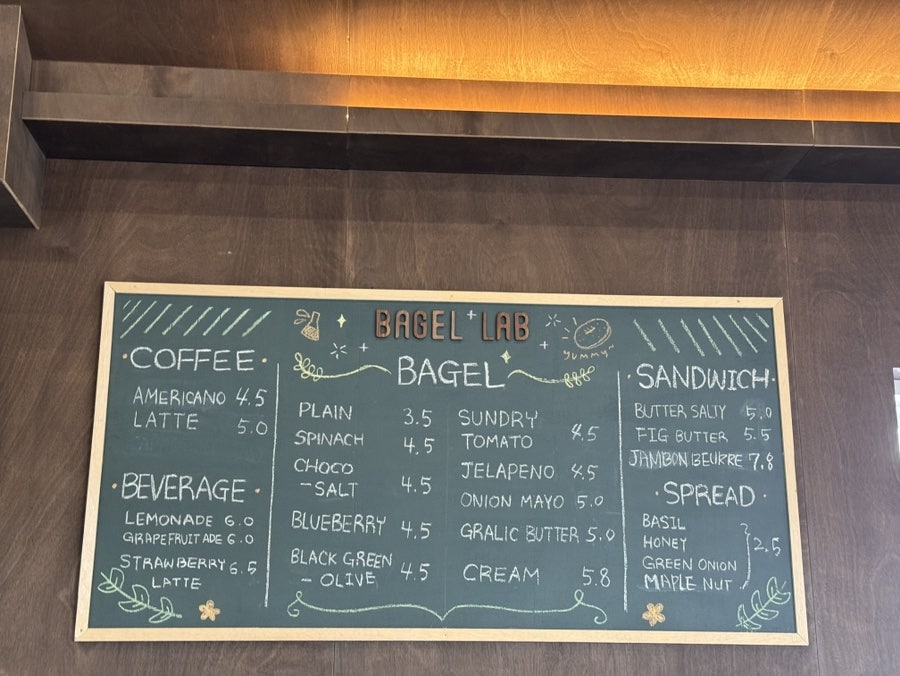 BAGEL LAB
YUMMY~
COFFEE
AMERICANO 4.5
LATTE 5.0
BEVERAGE
LEMONADE 6.0
GRAPEFRUIT ADE 6.0
STRAWBERRY 6.5
LATTE
BAGEL
PLAIN 3.5
SPINACH 4.5
CHOCO
-SALT 4.5
BLUEBERRY 4.5
BLACK GREEN
- OLIVE 4.5
SUNDRY
TOMATO 4.5
JELAPENO 4.5
ONION MAYO 5.0
GRALIC BUTTER 5.0
CREAM 5.8
SANDWICH
BUTTER SALTY 5.0
FIG BUTTER 5.5
JAMBON BEURRE 7.8
SPREAD
BASIL
HONEY 2.5
GREEN ONION
MAPLE NUT